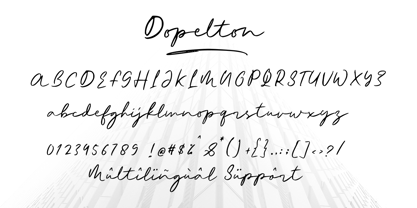 Dopelton
ABCDEFGHIJKLMNOPQRSTUVWXYZ
abcdefghijklmnopqrstuvwxyz
0123456789 !@#$%^&*()+{}..::[]<>?/
Mûltilïñgùâl Süppôrt